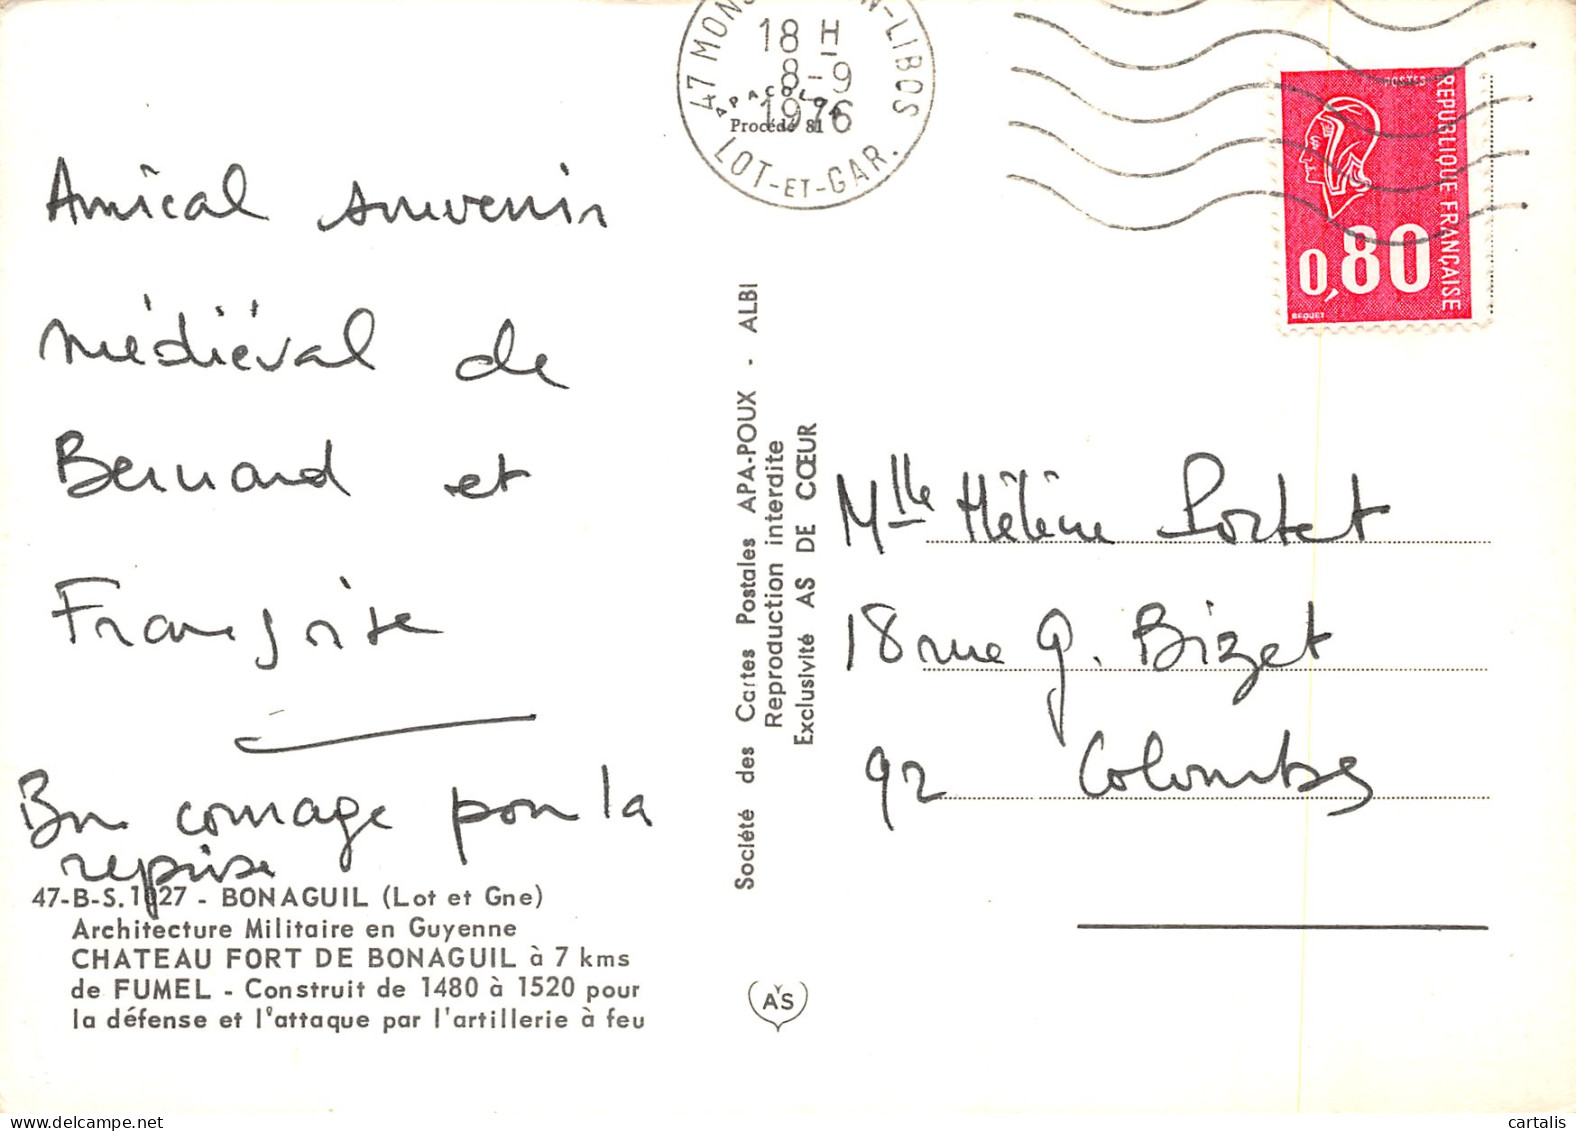 47 MONS N-LIBOS
18 H
8-9
1976
LOT-ET-GAR.
APACOLOR
Procédé 81
POSTES
REPUBLIQUE FRANÇAISE
0,80
BEQUET
Amical souvenir
médiéval de
Bernard et
Françoise
Bon courage pour la
reprise
47-B-S. 1027 - BONAGUIL (Lot et Gne)
Architecture Militaire en Guyenne
CHATEAU FORT DE BONAGUIL à 7 kms
de FUMEL - Construit de 1480 à 1520 pour
la défense et l'attaque par l'artillerie à feu
Société des Cartes Postales APA-POUX - ALBI
Reproduction interdite
Exclusivité AS DE CŒUR
Mlle Hélène Portet
18 rue G. Bizet
92 Colombes
AS
cartalis